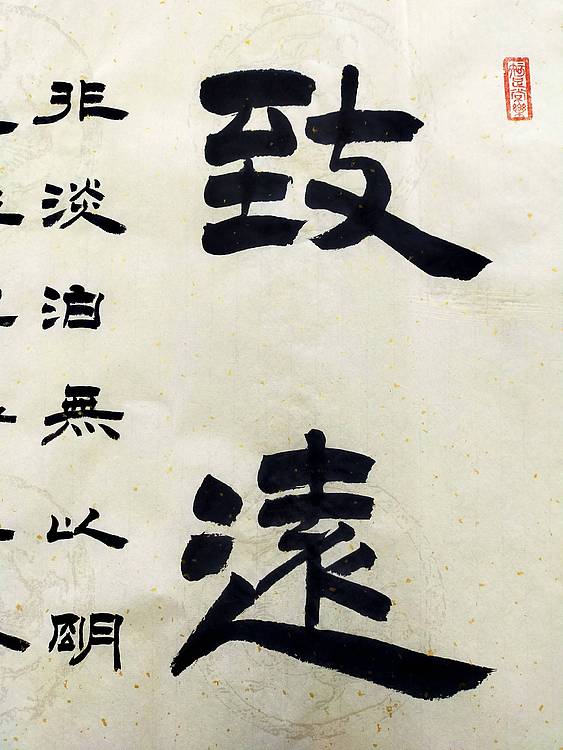 致遠
非淡泊無以明